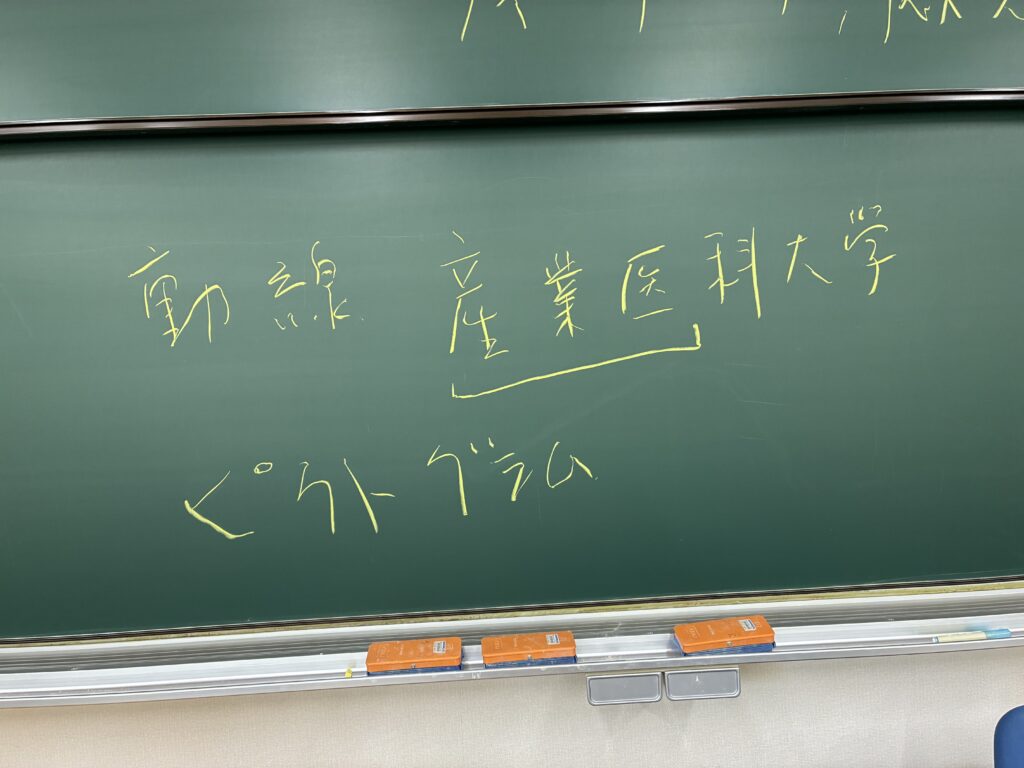 動線 産業医科大学
ピクトグラム